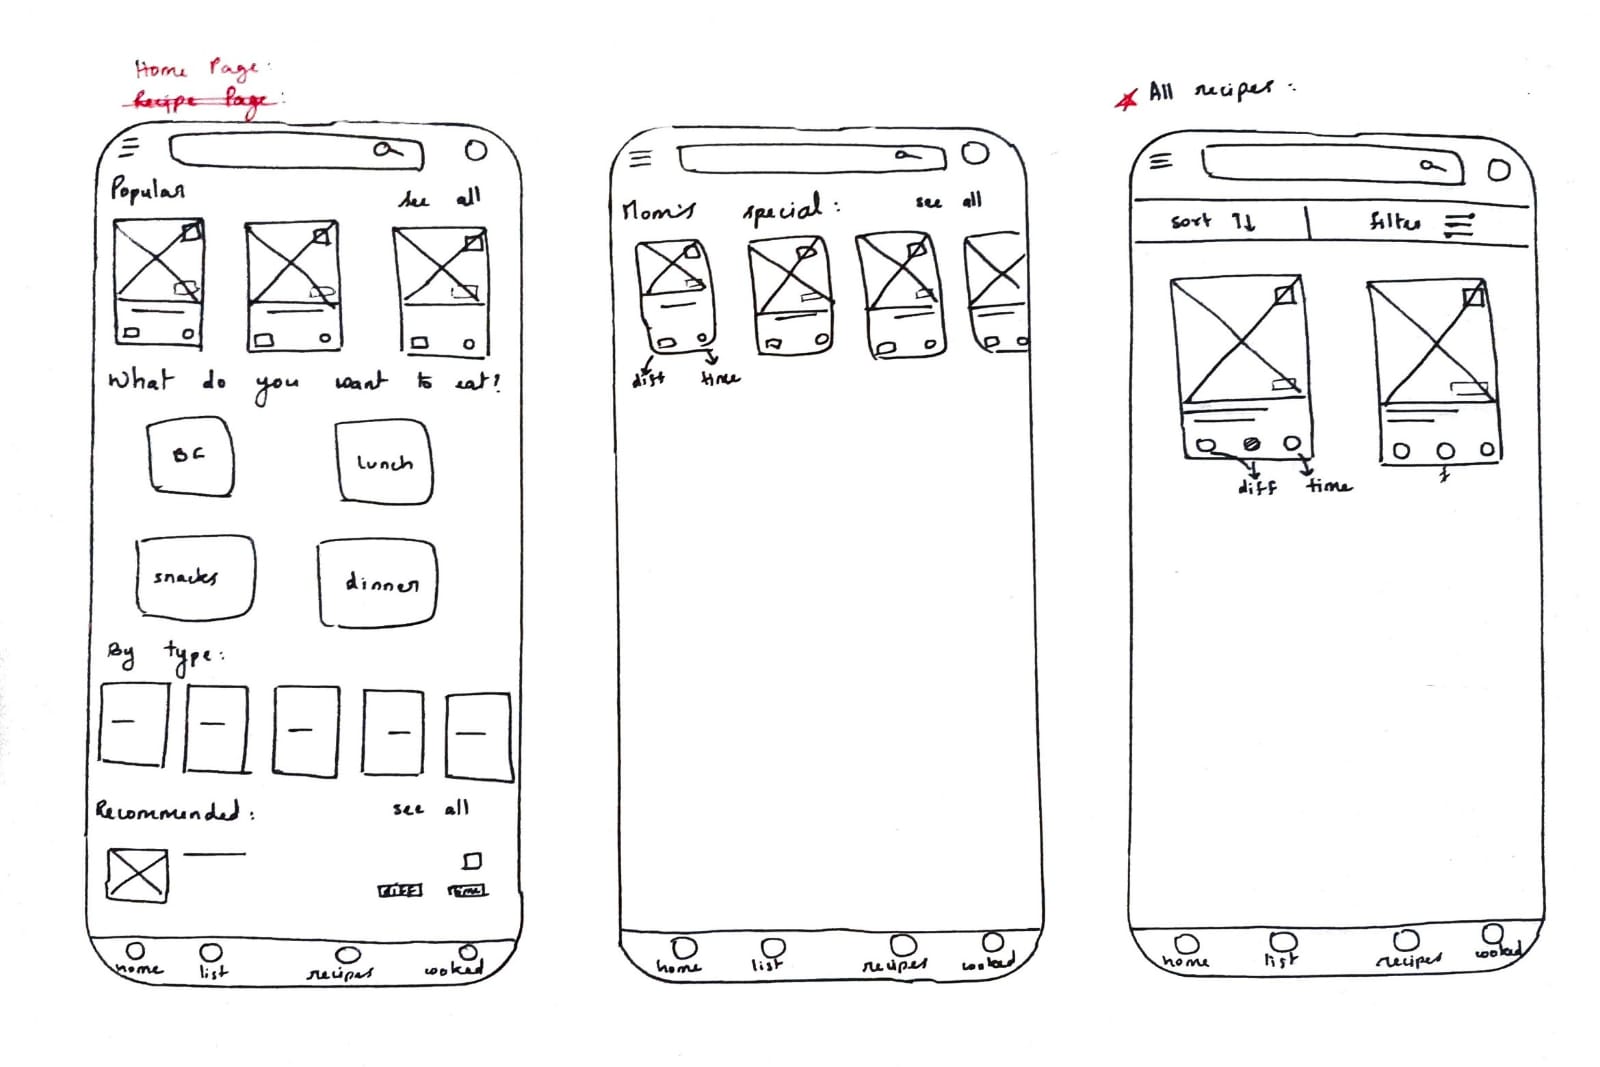 Home Page:
Recipe Page:
Popular see all
What do you want to eat?
BF Lunch
snacks dinner
By type:
Recommended: see all
diff time
home list recipes cooked
Mom's special: see all
diff time
home list recipes cooked
All recipes:
sort filter
diff time
home list recipes cooked